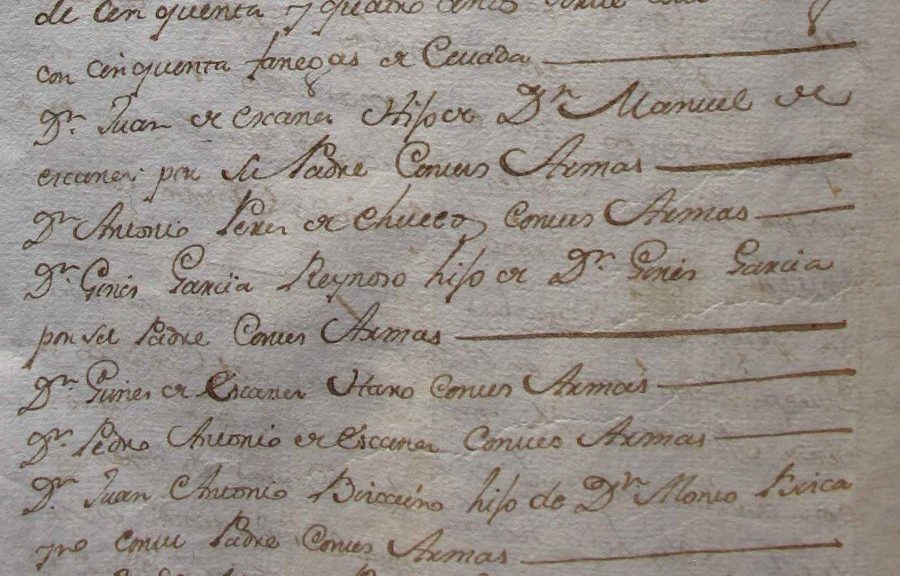 de cinquenta y quatro
con cinquenta fanegas de Cevada
Dn. Juan de escaner Hijo de Dn Manuel de
escaner por su Padre Con sus Armas
Dn Antonio Peres de Chuecos con sus Armas
Dn. Gines Garcia Reynoso hijo de Dn. Gines Garcia
por su Padre Con sus Armas
Dn. Gines de Escaner Haro con sus Armas
Dn. Pedro Antonio de Escaner Con sus Armas
Dn. Juan Antonio hijo de Dn
Padre Con sus Armas